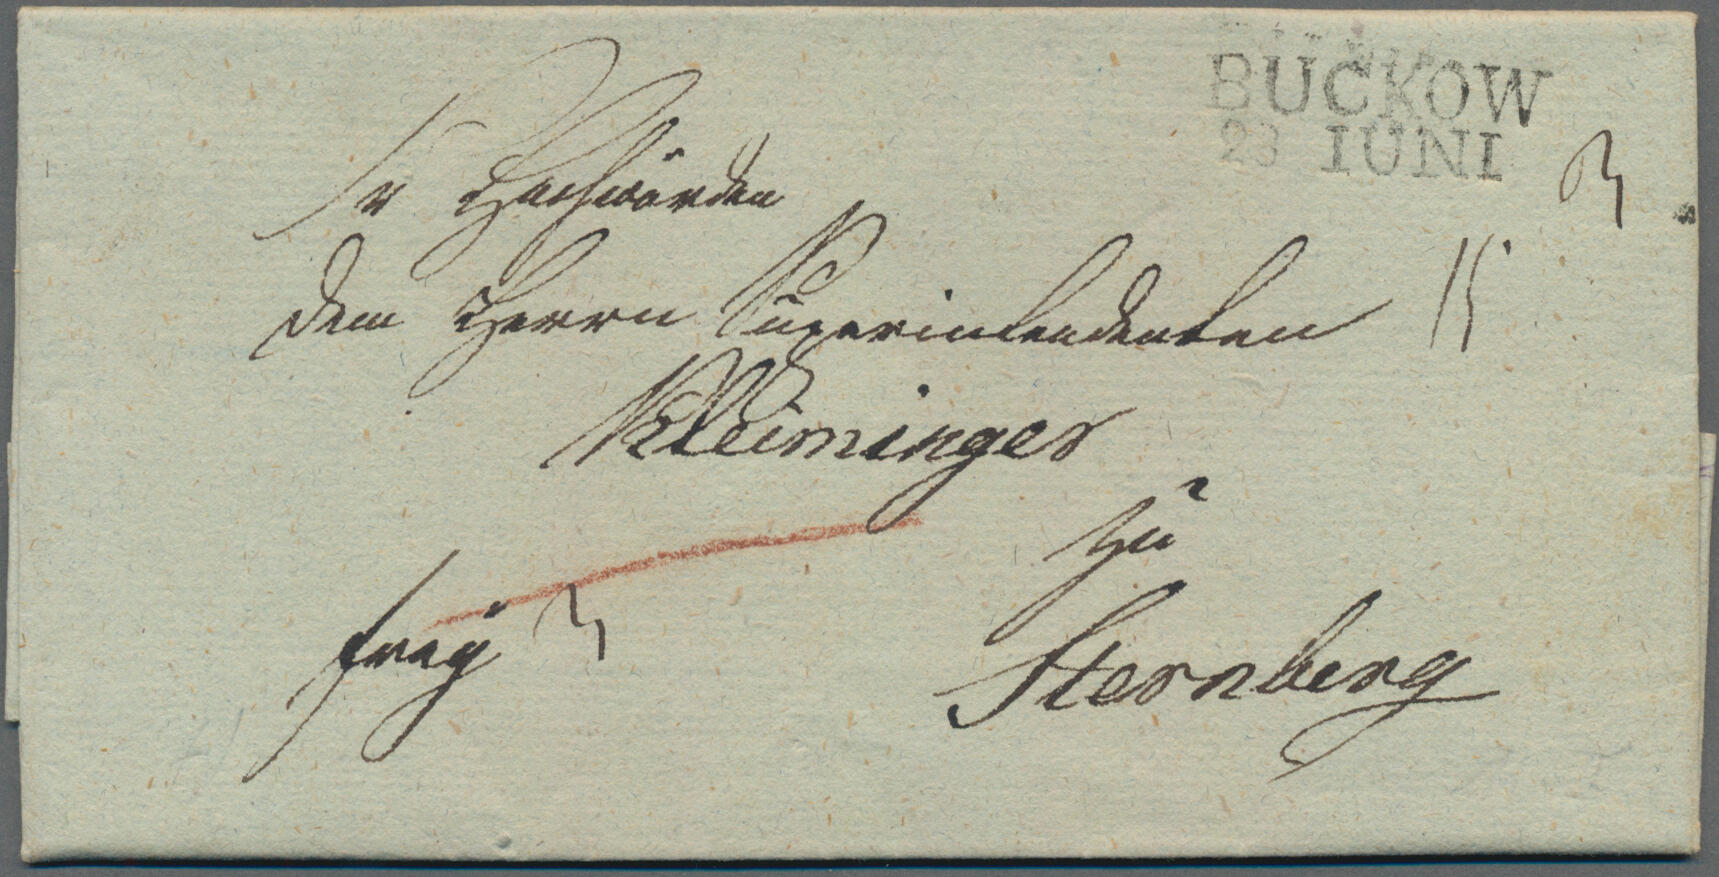 BUCKOW
23 IUNI
Sr Hochwürden
dem Herrn Superintendenten
Kleiminger
zu
Sternberg
frey